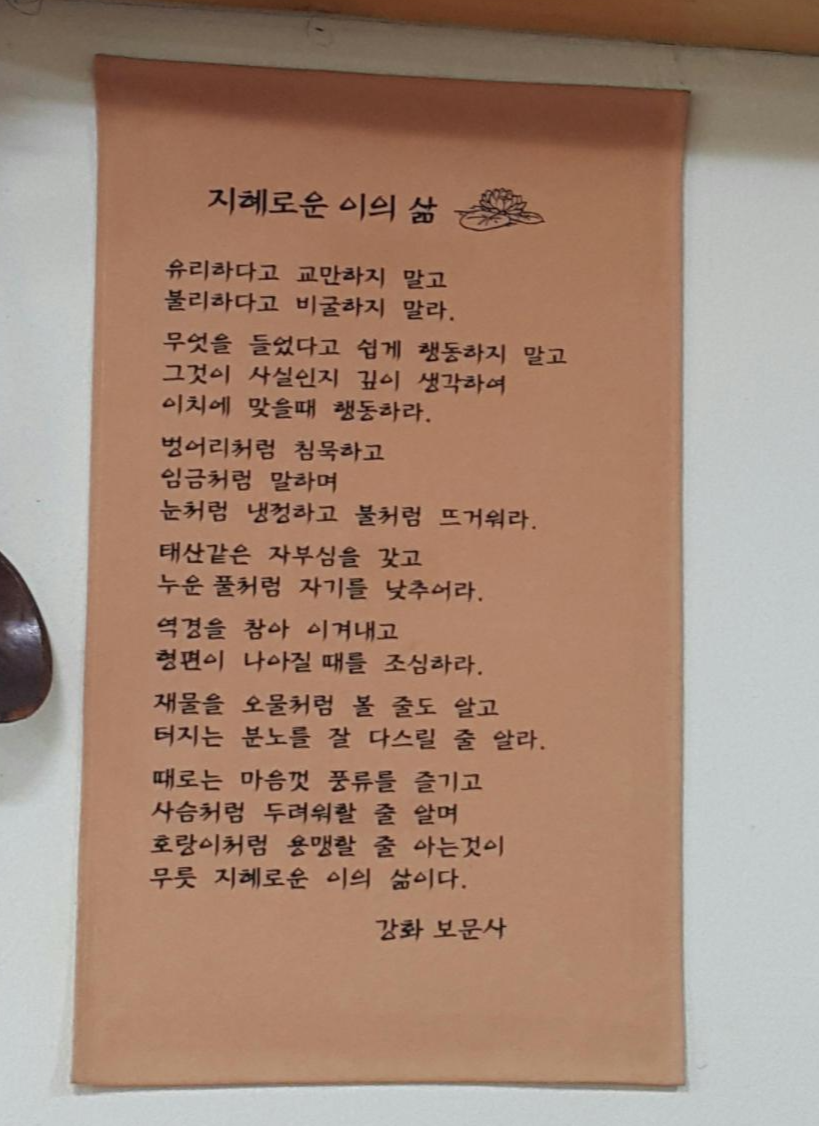 지혜로운 이의 삶
유리하다고 교만하지 말고
불리하다고 비굴하지 말라.
무엇을 들었다고 쉽게 행동하지 말고
그것이 사실인지 깊이 생각하여
이치에 맞을때 행동하라.
벙어리처럼 침묵하고
임금처럼 말하며
눈처럼 냉정하고 불처럼 뜨거워라.
태산같은 자부심을 갖고
누운 풀처럼 자기를 낮추어라.
역경을 참아 이겨내고
형편이 나아질 때를 조심하라.
재물을 오물처럼 볼 줄도 알고
터지는 분노를 잘 다스릴 줄 알라.
때로는 마음껏 풍류를 즐기고
사슴처럼 두려워할 줄 알며
호랑이처럼 용맹할 줄 아는것이
무릇 지혜로운 이의 삶이다.
강화 보문사